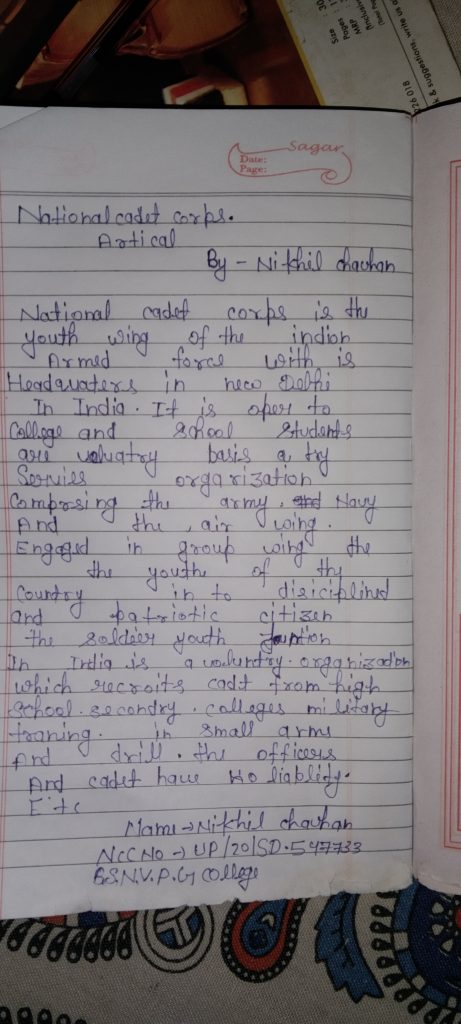 Size : 20
Pages : 1
MRP
(Inclusive
k & suggestions, write us a
226 018
Sagar
Date:
Page:
National cadet corps.
Artical
By - Nikhil chauhan
National cadet corps is the
youth wing of the indion
Armed force with is
Headquaters in new Delhi
In India. It is oper to
College and school students
are voluatry basis a try
Servies orgarization
Comprsing the army, Navy
And the, air wing.
Engaged in group wing the
the youth of thy
Country in to disiciplined
and patriotic citizen
the soldier youth
In India is a voluntry organization
which recroits cadt from high
School. secondry. colleges military
traning. in small arms
And drill. the officers
And cadet have No liablidy.
Etc
Name → Nikhil chauhan
NCC No → UP/20/SD.547733
B.S.N.V.P.G College